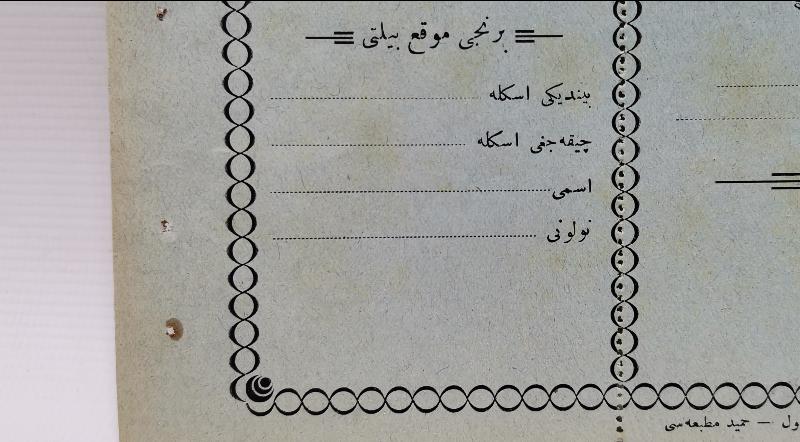 برنجی موقع بیلتی
بیندیکی اسکله
چیقه‌جغی اسکله
اسمی
نولونی
ول — حمید مطبعه‌سی